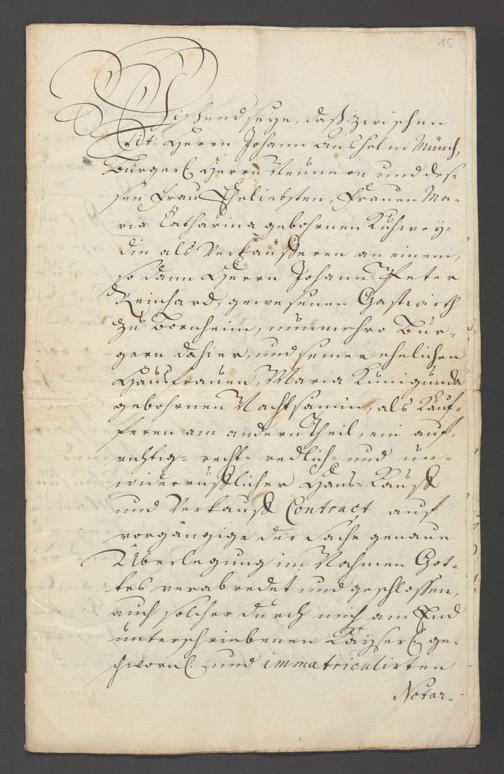 15
Wissend seye, daß zwischen
tit: Herrn Johann Anshelm Münch,
Bürgerl. Herrn und des-
sen Frau Eheliebsten, Frauen Ma-
ria Catharina gebohrnen
din als Verkäufferen an einem,
so dann Herrn Johann Peter
Reinhard, gewesenen Gastwirth
zu Bornheim, nunmehro Bür-
gern dahier, und seiner ehelichen
Haußfrauen, Maria Kunigunda
gebohrnen als Käuf-
feren am andern Theil, ein auf-
richtig- recht- redlich- und un-
wiederrufflicher Hauß-Kauff
und Verkauff Contract auf
vorgängige der Sache genaue
Überlegung im Nahmen Got-
tes verabredet und geschlossen,
auch solcher durch mich am End
unterschriebenen Kayserl. ge-
schwornl. und immatriculirten
Notar-